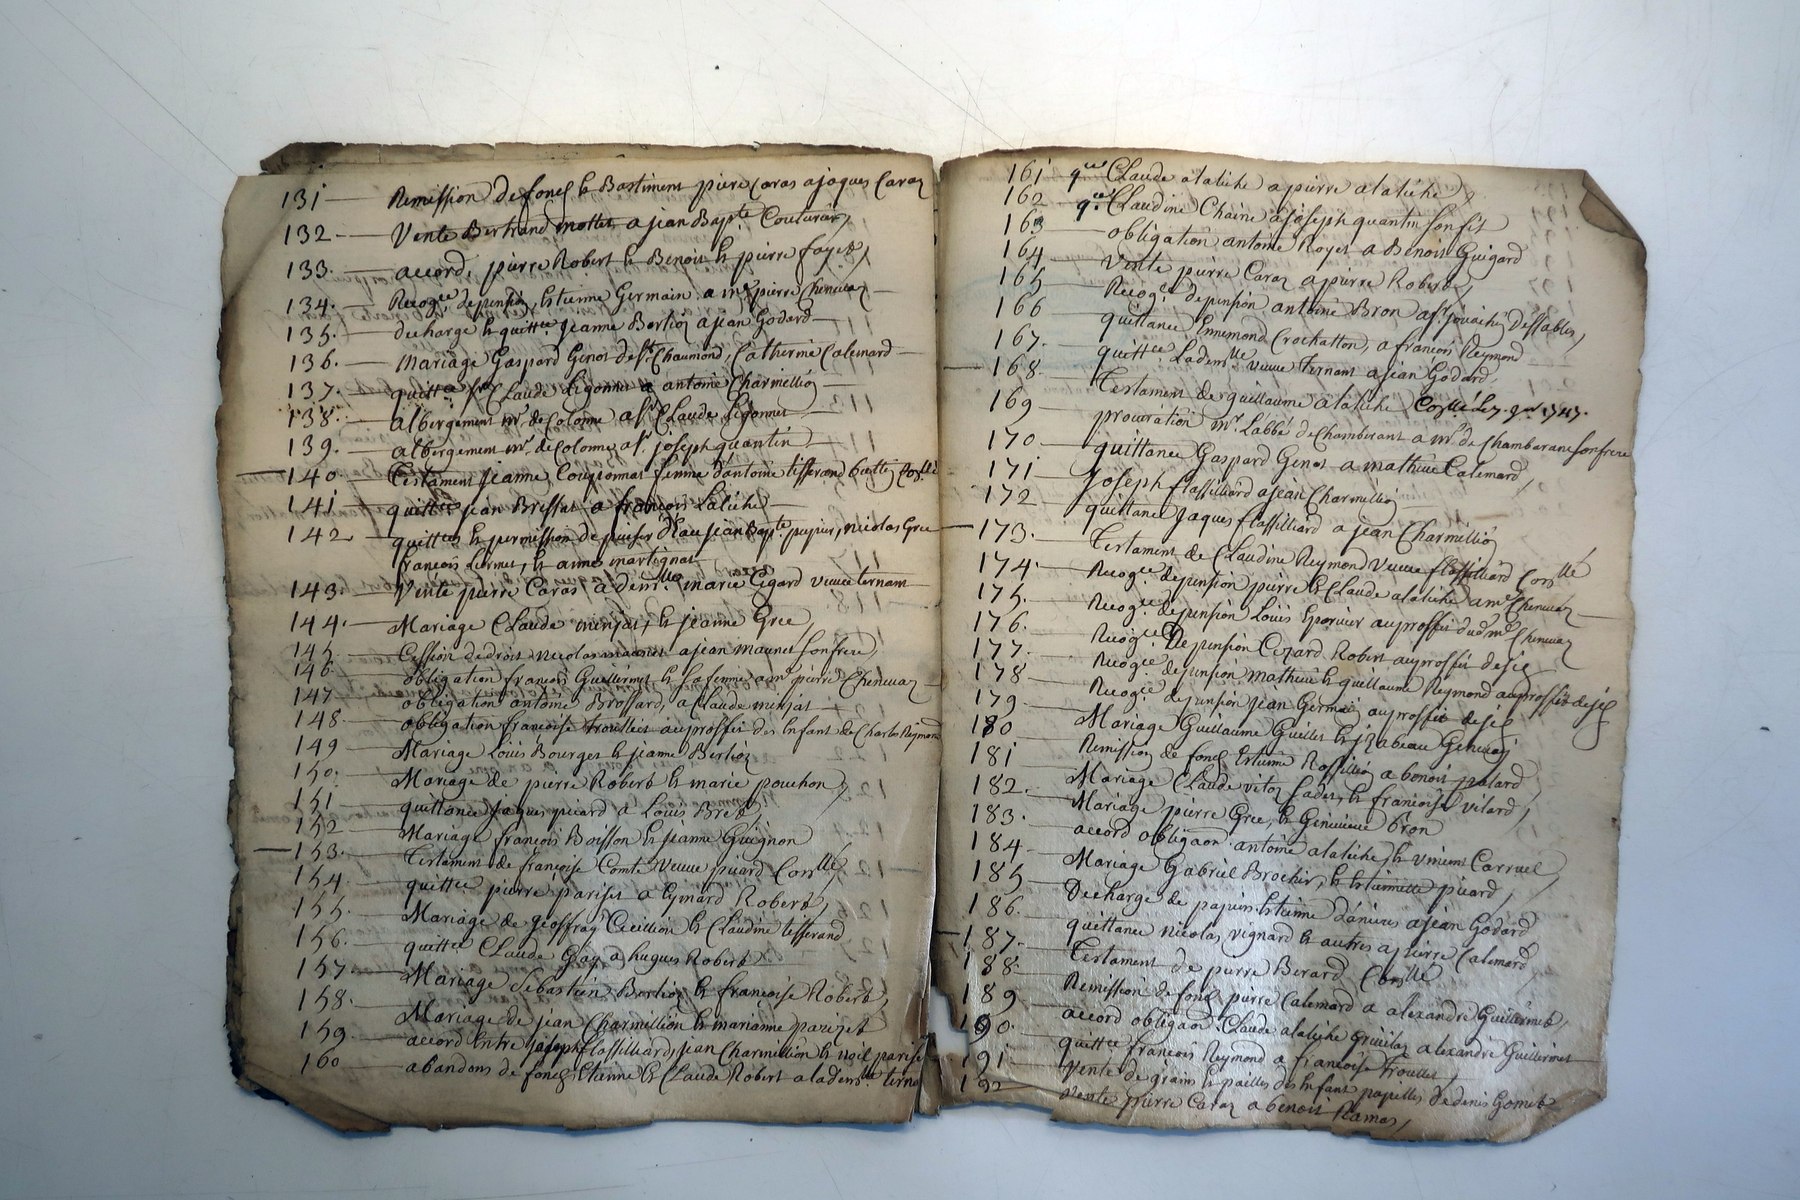 131 — Remission de fond & Bastiment piere Caras a jaques Caraz
132. — Vente Bertrand mottet a jean Bapte Couturier
133. — accord, pierre Robert & Benoit & pierre fayet
134. — Recogce de pension Estienne Germain a mr pierre Chenevaz
135. — decharge & quittce jeanne Berlioz a jean Godard
136. — Mariage Gaspard Genot de St Chaumond, Catherine Calemard
137. — quittce Claude Ligonnet a antoine Charmillion
138. — albergement mr. de Colonne a Sr Claude Ligonnet
139. — albergement mr. de Colonne a Sr joseph quantin
140. — Testament jeanne femme d'antoine tisserand
141 — quittce jean Brissat a françois Laliche
142 — quittces & permission de puiser d'Eau jean Bapte pupier, nicolas Gree
françois & aimé martignat
143. — Vente pierre Caras a demlle marie Gigard veuve ternant
144. — Mariage Claude minjat, & jeanne Gree
145. — Cession de droit nicolas maunet a jean maunet son frere
146 — obligation françois Guillermet & sa femme a mr pierre Chenevaz
147 — obligation antoine Brossard, a Claude minjat
148 — obligation françoise trouillet au proffit des Enfant de Charles Reymond
149 — Mariage Louis Bourget & jeanne Berlioz
150. — Mariage de pierre Robert & marie pouchon
151 — quittance jaques picard a Louis Bret
152 — Mariage françois Boisson & jeanne Guignon
153. — Testament de françoise Comte Veuve picard Conllé
154 — quittce pierre pariset a Eymard Robert
155. — Mariage de geoffray Cecillion & Claudine tisserand
156. — quittce Claude Gay a hugues Robert
157 — Mariage Sebastien Berlioz & françoise Robert
158. — Mariage de jean Charmillion & marianne pariset
159. — accord entre joseph flassilliard, jean Charmillion & noel pariset
160 — abandons de fond Etienne & Claude Robert a la demlle terna
161 qce Claude alatiche a pierre alatiche
162 qce Claudine Chaine a joseph quantin son fis
163 — obligation antoine Royet a Benoit Guigard
164 — Vente pierre Caraz a pierre Robert
165 — Recogce de pension antoine Bron a Sr jouachin Dessables
166 quittance Ennemond Crochatton, a francois Reymond
167. quittce La demlle veuve ternant a jean Godard
168. — Testament de guillaume alatiche
169 — procuration mr. L'abbé de Chambarant a mr de Chambarant son frere
170. — quittance Gaspard Genot a mathieu Calemard
171 — joseph flassilliard a jean Charmillion
172 quittance jaques flassilliard a jean Charmillion
173. — Testament de Claudine Reymond Veuve flassilliard Conllé
174. — Recogce de pension pierre & Claude alatiche a mr Chenevaz
175. — Recogce de pension Louis Eporcier au proffit dud mr Chenevaz
176. — Recogce De pension Cezard Robert au proffit
177. — Recogce de pension mathieu & guillaume Reymond au proffit
178 — Recogce de pension jean Germai au proffit
179 — Mariage Guillaume Guillet & jzabeau Genevay
180 Remission de fond Estienne Rossillion a benoit palard
181 — Mariage Claude viton Cadet, & françoise vilard
182. — Mariage pierre Gree, & Genevieve Bron
183. — accord obligaon antoine alatiche & vincent Carruel
184 — Mariage Gabriel Brochier, & Estiennette picard
185 — Decharge de papiers Estienne danieres a jean Godard
186. — quittance nicolas vignard & autres a pierre Calemard
187. — Testament de pierre Berard Conllé
188. — Remission de fond pierre Calemard a alexandre Guillermet
189 — accord obligaon Claude alatiche a alexandre Guillermet
190. — quittce francois Reymond a françoise trouillet
191 — Vente de grains & pailles des Enfant pupilles de denis Gomet
192 Vente pierre Caraz a benoit Ramas